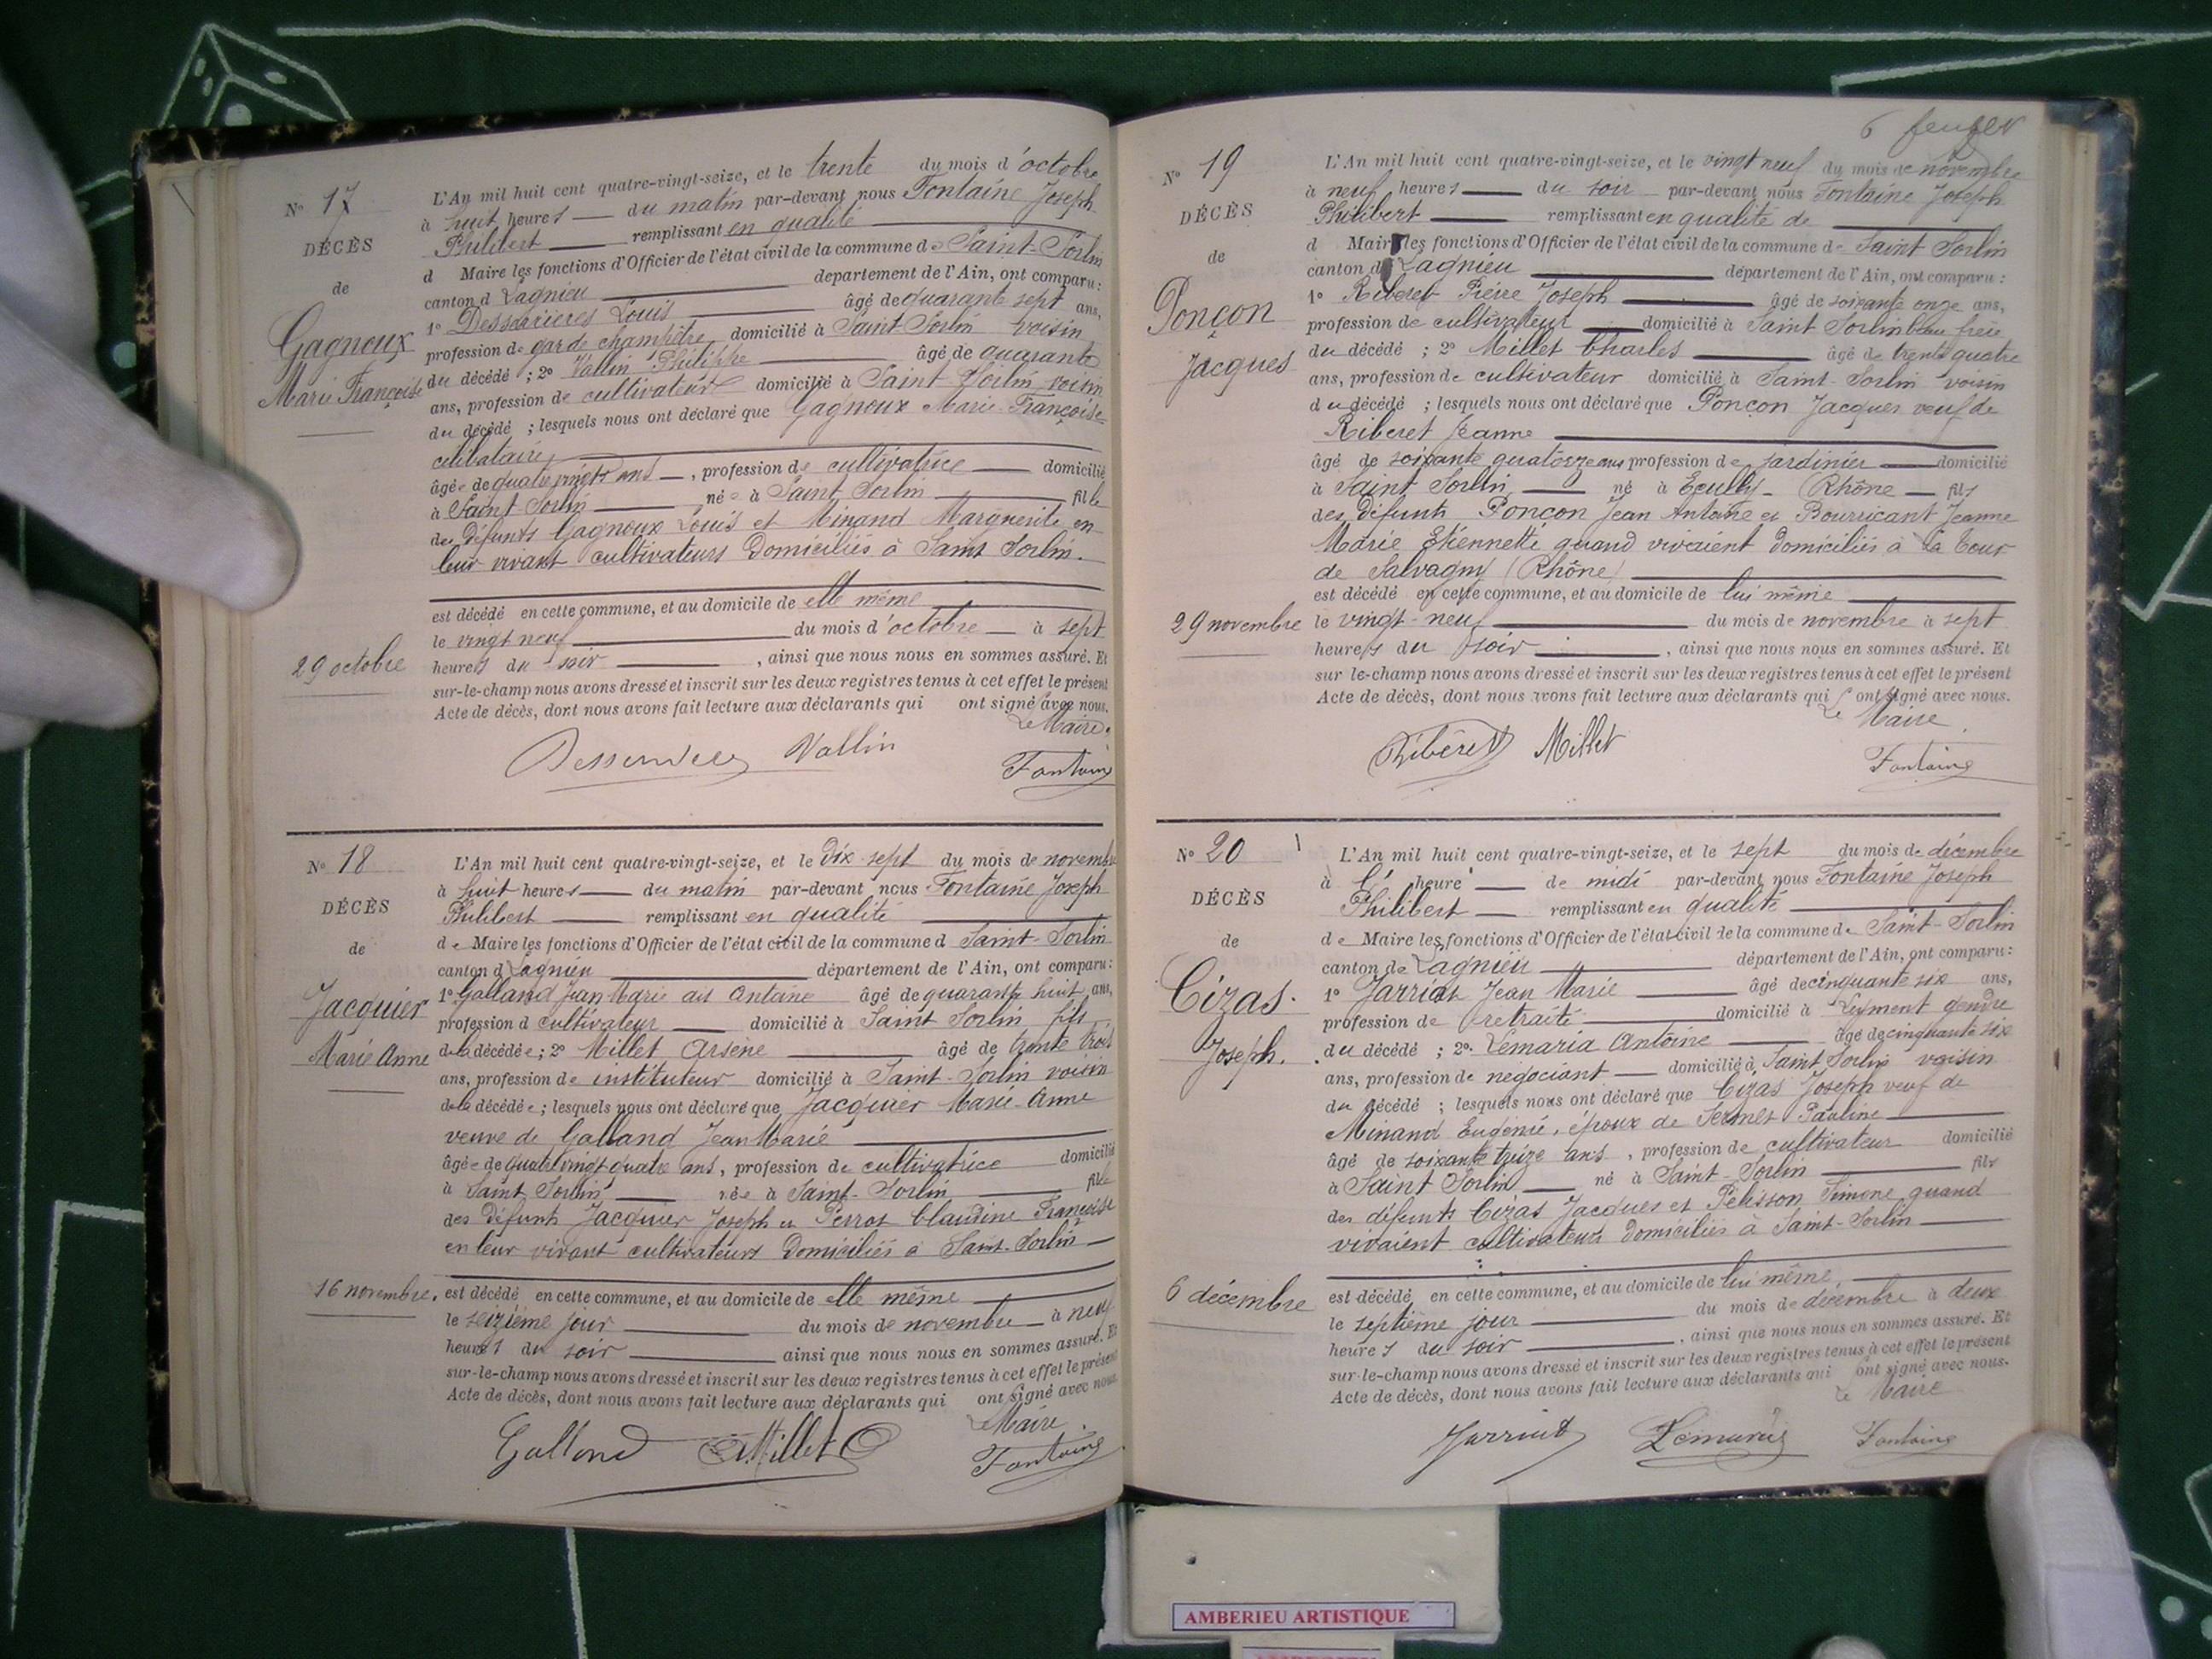 N° 17
DÉCÈS
de
Gagnoux
Marie Françoise
29 octobre
L'An mil huit cent quatre-vingt-seize, et le trente du mois d'octobre
à huit heures du matin par-devant nous Fontaine Joseph
Philibert remplissant en qualité
d Maire les fonctions d'Officier de l'état civil de la commune de Saint-Sorlin
canton d Lagnieu département de l'Ain, ont comparu:
1° Louis âgé de quarante sept ans,
profession de garde champêtre domicilié à Saint-Sorlin voisin
du décédé ; 2° Vallin Philippe âgé de quarante
ans, profession de cultivateur domicilié à Saint Sorlin voisin
du décédé ; lesquels nous ont déclaré que Gagnoux Marie-Françoise
célibataire
âgée de quatre vingts ans, profession de cultivatrice domicilié
à Saint Sorlin née à Saint Sorlin fille
des défunts Gagnoux Louis et Minand Marguerite en
leur vivant cultivateurs domiciliés à Saint Sorlin.
est décédé en cette commune, et au domicile de elle même
le vingt neuf du mois d'octobre à sept
heures du soir, ainsi que nous nous en sommes assuré. Et
sur-le-champ nous avons dressé et inscrit sur les deux registres tenus à cet effet le présent
Acte de décès, dont nous avons fait lecture aux déclarants qui ont signé avec nous.
Le Maire.
Vallin Fontaine
N° 18
DÉCÈS
de
Jacquier
Marie Anne
16 novembre.
L'An mil huit cent quatre-vingt-seize, et le dix sept du mois de novembre
à huit heures du matin par-devant nous Fontaine Joseph
Philibert remplissant en qualité
de Maire les fonctions d'Officier de l'état civil de la commune d Saint-Sorlin
canton d Lagnieu département de l'Ain, ont comparu:
1° Galland Jean Marie dit Antoine âgé de quarante huit ans,
profession d cultivateur domicilié à Saint Sorlin fils
de la décédée; 2° Millet Arsène âgé de trente trois
ans, profession de instituteur domicilié à Saint-Sorlin voisin
de la décédée; lesquels nous ont déclaré que Jacquier Marie-Anne
veuve de Galland Jean Marie
âgée de quatre vingt quatre ans, profession de cultivatrice domicilié
à Saint Sorlin née à Saint-Sorlin fille
des défunts Jacquier Joseph et Perrot Claudine Françoise
en leur vivant cultivateurs domiciliés à Saint-Sorlin
est décédé en cette commune, et au domicile de elle même
le seizième jour du mois de novembre à neuf
heures du soir ainsi que nous nous en sommes assuré. Et
sur-le-champ nous avons dressé et inscrit sur les deux registres tenus à cet effet le présent
Acte de décès, dont nous avons fait lecture aux déclarants qui ont signé avec nous
Le Maire.
Galland Millet Fontaine
N° 19
DÉCÈS
de
Ponçon
Jacques
29 novembre
L'An mil huit cent quatre-vingt-seize, et le vingt neuf du mois de novembre
à neuf heures du soir par-devant nous Fontaine Joseph
Philibert remplissant en qualité de
d Maire les fonctions d'Officier de l'état civil de la commune de Saint Sorlin
canton d Lagnieu département de l'Ain, ont comparu:
1° Riberet Pierre Joseph âgé de soixante onze ans,
profession de cultivateur domicilié à Saint Sorlin beau frère
du décédé ; 2° Millet Charles âgé de trente quatre
ans, profession de cultivateur domicilié à Saint-Sorlin voisin
du décédé ; lesquels nous ont déclaré que Ponçon Jacques veuf de
Riberet Jeanne
âgé de soixante quatorze ans profession de jardinier domicilié
à Saint Sorlin né à Ecully - Rhône fils
des défunts Ponçon Jean Antoine et Bourricant Jeanne
Marie Etiennette quand vivaient domiciliés à la Tour
de Salvagny (Rhône)
est décédé en cette commune, et au domicile de lui même
le vingt-neuf du mois de novembre à sept
heures du soir, ainsi que nous nous en sommes assuré. Et
sur le-champ nous avons dressé et inscrit sur les deux registres tenus à cet effet le présent
Acte de décès, dont nous avons fait lecture aux déclarants qui ont signé avec nous.
Le Maire
Ribéret Millet Fontaine
N° 20
DÉCÈS
de
Cizas.
Joseph.
6 décembre
L'An mil huit cent quatre-vingt-seize, et le sept du mois de décembre
à heure de midi par-devant nous Fontaine Joseph
Philibert remplissant en qualité
de Maire les fonctions d'Officier de l'état civil de la commune de Saint-Sorlin
canton de Lagnieu département de l'Ain, ont comparu:
1° Jarriat Jean Marie âgé de cinquante six ans,
profession de retraité domicilié à Leyment gendre
du décédé ; 2° Lemaria Antoine âgé de cinquante six
ans, profession de négociant domicilié à Saint Sorlin voisin
du décédé ; lesquels nous ont déclaré que Cizas Joseph veuf de
Minand Eugénie, époux de Sermet Pauline
âgé de soixante treize ans, profession de cultivateur domicilié
à Saint Sorlin né à Saint-Sorlin fils
des défunts Cizas Jacques et Pélisson Simone quand
vivaient cultivateurs domiciliés à Saint-Sorlin
est décédé en cette commune, et au domicile de lui même
le septième jour du mois de décembre à deux
heures du soir, ainsi que nous nous en sommes assuré. Et
sur-le-champ nous avons dressé et inscrit sur les deux registres tenus à cet effet le présent
Acte de décès, dont nous avons fait lecture aux déclarants qui ont signé avec nous.
Le Maire
Jarriat Lemaria Fontaine
AMBERIEU ARTISTIQUE